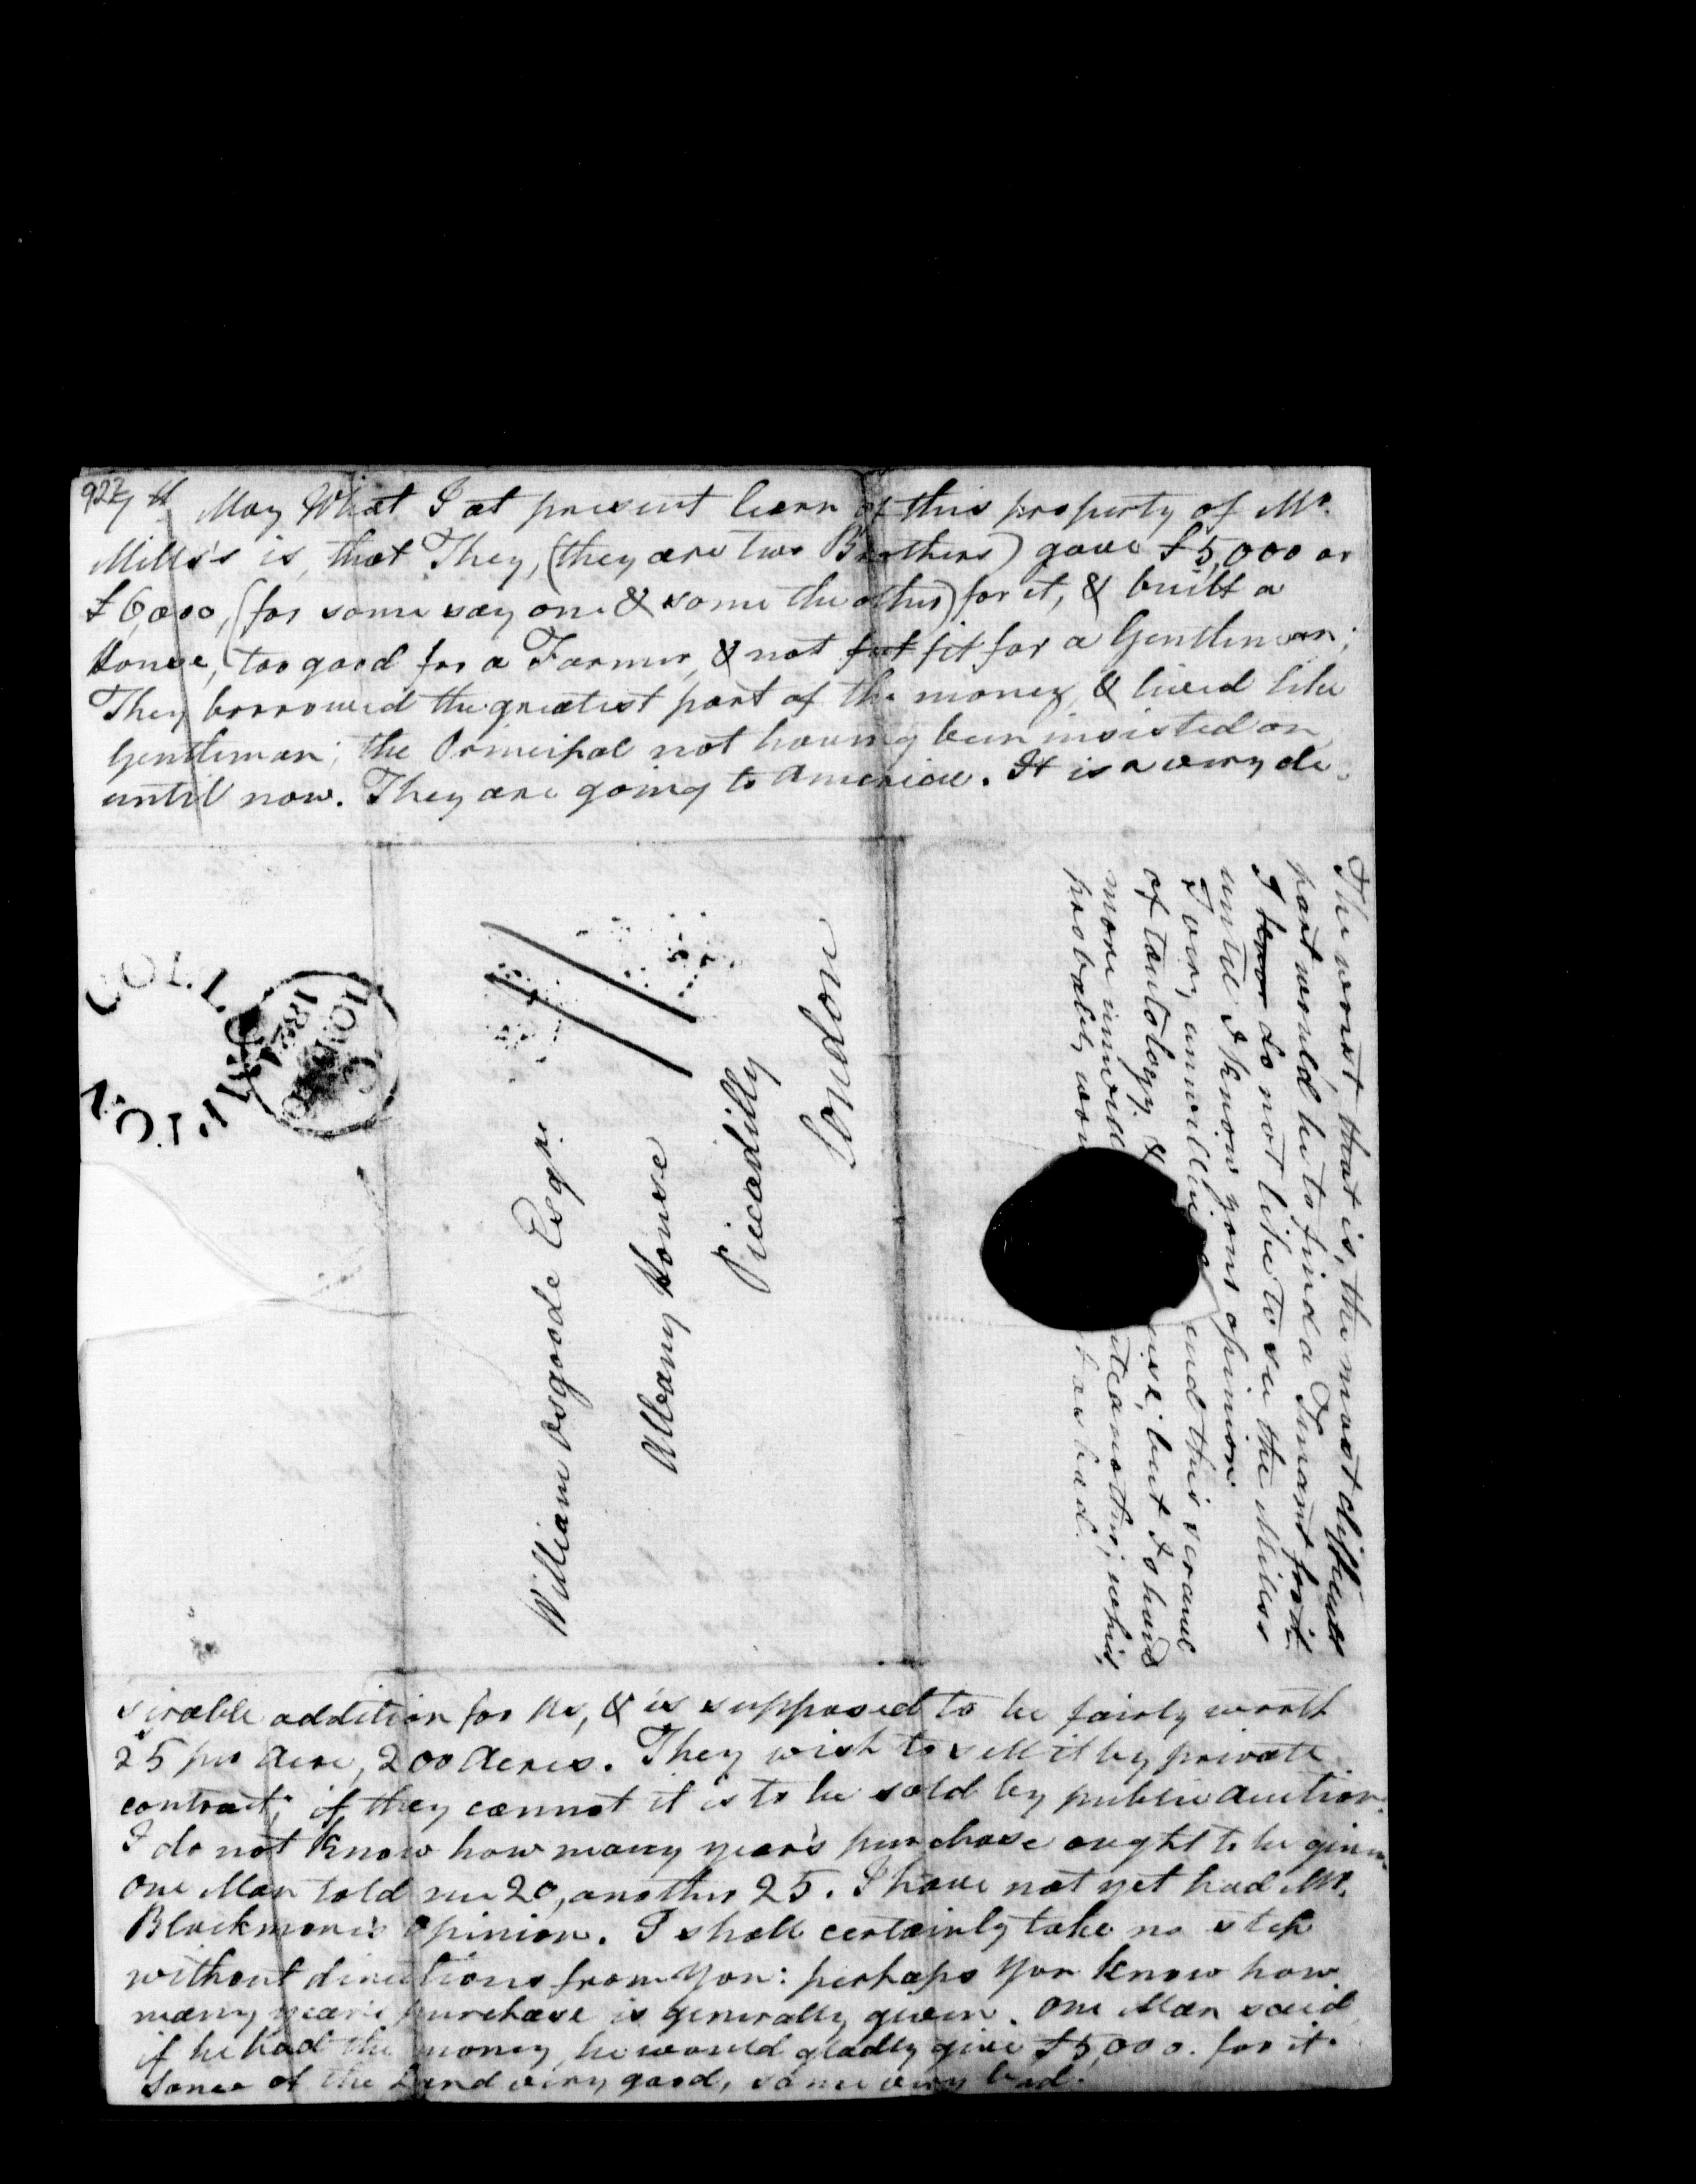 922
7th May What I at present learn of this property of Mr.
Mills's is, that They, (they are two Brothers) gave £5,000 or
£6,000, (for some say one & some the other) for it, & built a
House, too good for a Farmer, & not fit for a Gentleman;
They borrowed the greatest part of the money, & lived like
Gentleman; the Principal not having been insisted on,
until now. They are going to America. It is a very de-
sirable addition for us, & is supposed to be fairly worth
25s per Acre, 200 Acres. They wish to sell it by private
contract; if they cannot it is to be sold by public Auction.
I do not know how many year's purchase ought to be given
One Man told me 20, another 25. I have not yet had Mr.
Blackmore's Opinion. I shall certainly take no step
without directions from You: perhaps You know how
many years purchase is generally given. One Man said
if he had the money, he would gladly give £5,000. for it.
Some of the Land very good, some very bad.
The worst, that is, the most difficult
part would be to find a Tenant for it.
I do not like to see the Mills's
until I know your opinion
I very unwilling end this scrawl
of tautology &
more
probably
but I should
another; which
COLLUMPTON
1824
William Osgoode Esqre.
Albany House
Piccadilly
London
11